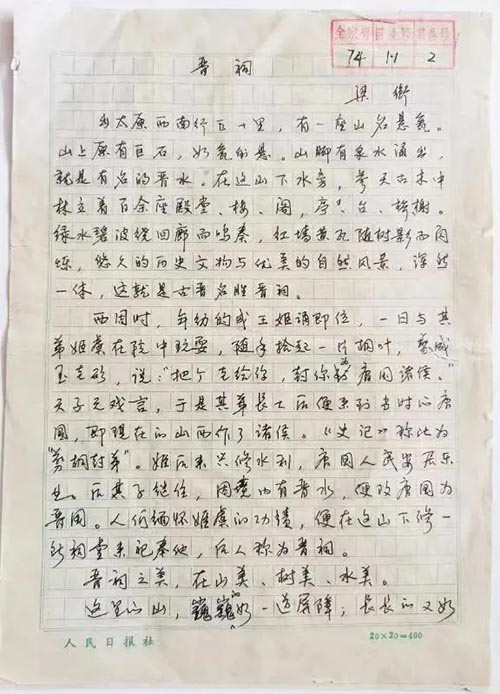 全宗号 目录号 案卷号
74 1·1 2
晋祠
梁衡
出太原西南行五十里，有一座山名悬瓮。
山上原有巨石，如瓮倒悬。山脚有泉水涌出，
就是有名的晋水。在这山下水旁，参天古木中
林立着百余座殿堂、楼、阁，亭、台、桥榭。
绿水碧波绕回廊而鸣奏，红墙黄瓦随树影而闪
烁，悠久的历史文物与优美的自然风景，浑然
一体，这就是古晋名胜晋祠。
西周时，年幼的成王姬诵即位，一日与其
弟姬虞在院中玩耍，随手拾起一片桐叶，剪成
玉圭形，说："把这个圭给你，封你为唐国诸侯。"
天子无戏言，于是其弟长大后便来到当时的唐
国，即现在的山西作了诸侯。《史记》称此为
"剪桐封弟"。姬后来兴修水利，唐国人民安居乐
业。后其子继位，因境内有晋水，便改唐国为
晋国。人们缅怀姬虞的功绩，便在这山下修一
祠堂来祀奉他，后人称为晋祠。
晋祠之美，在山美、树美、水美。
这里的山，巍巍的如一道屏障；长长的又如
人民日报社
20×20=400